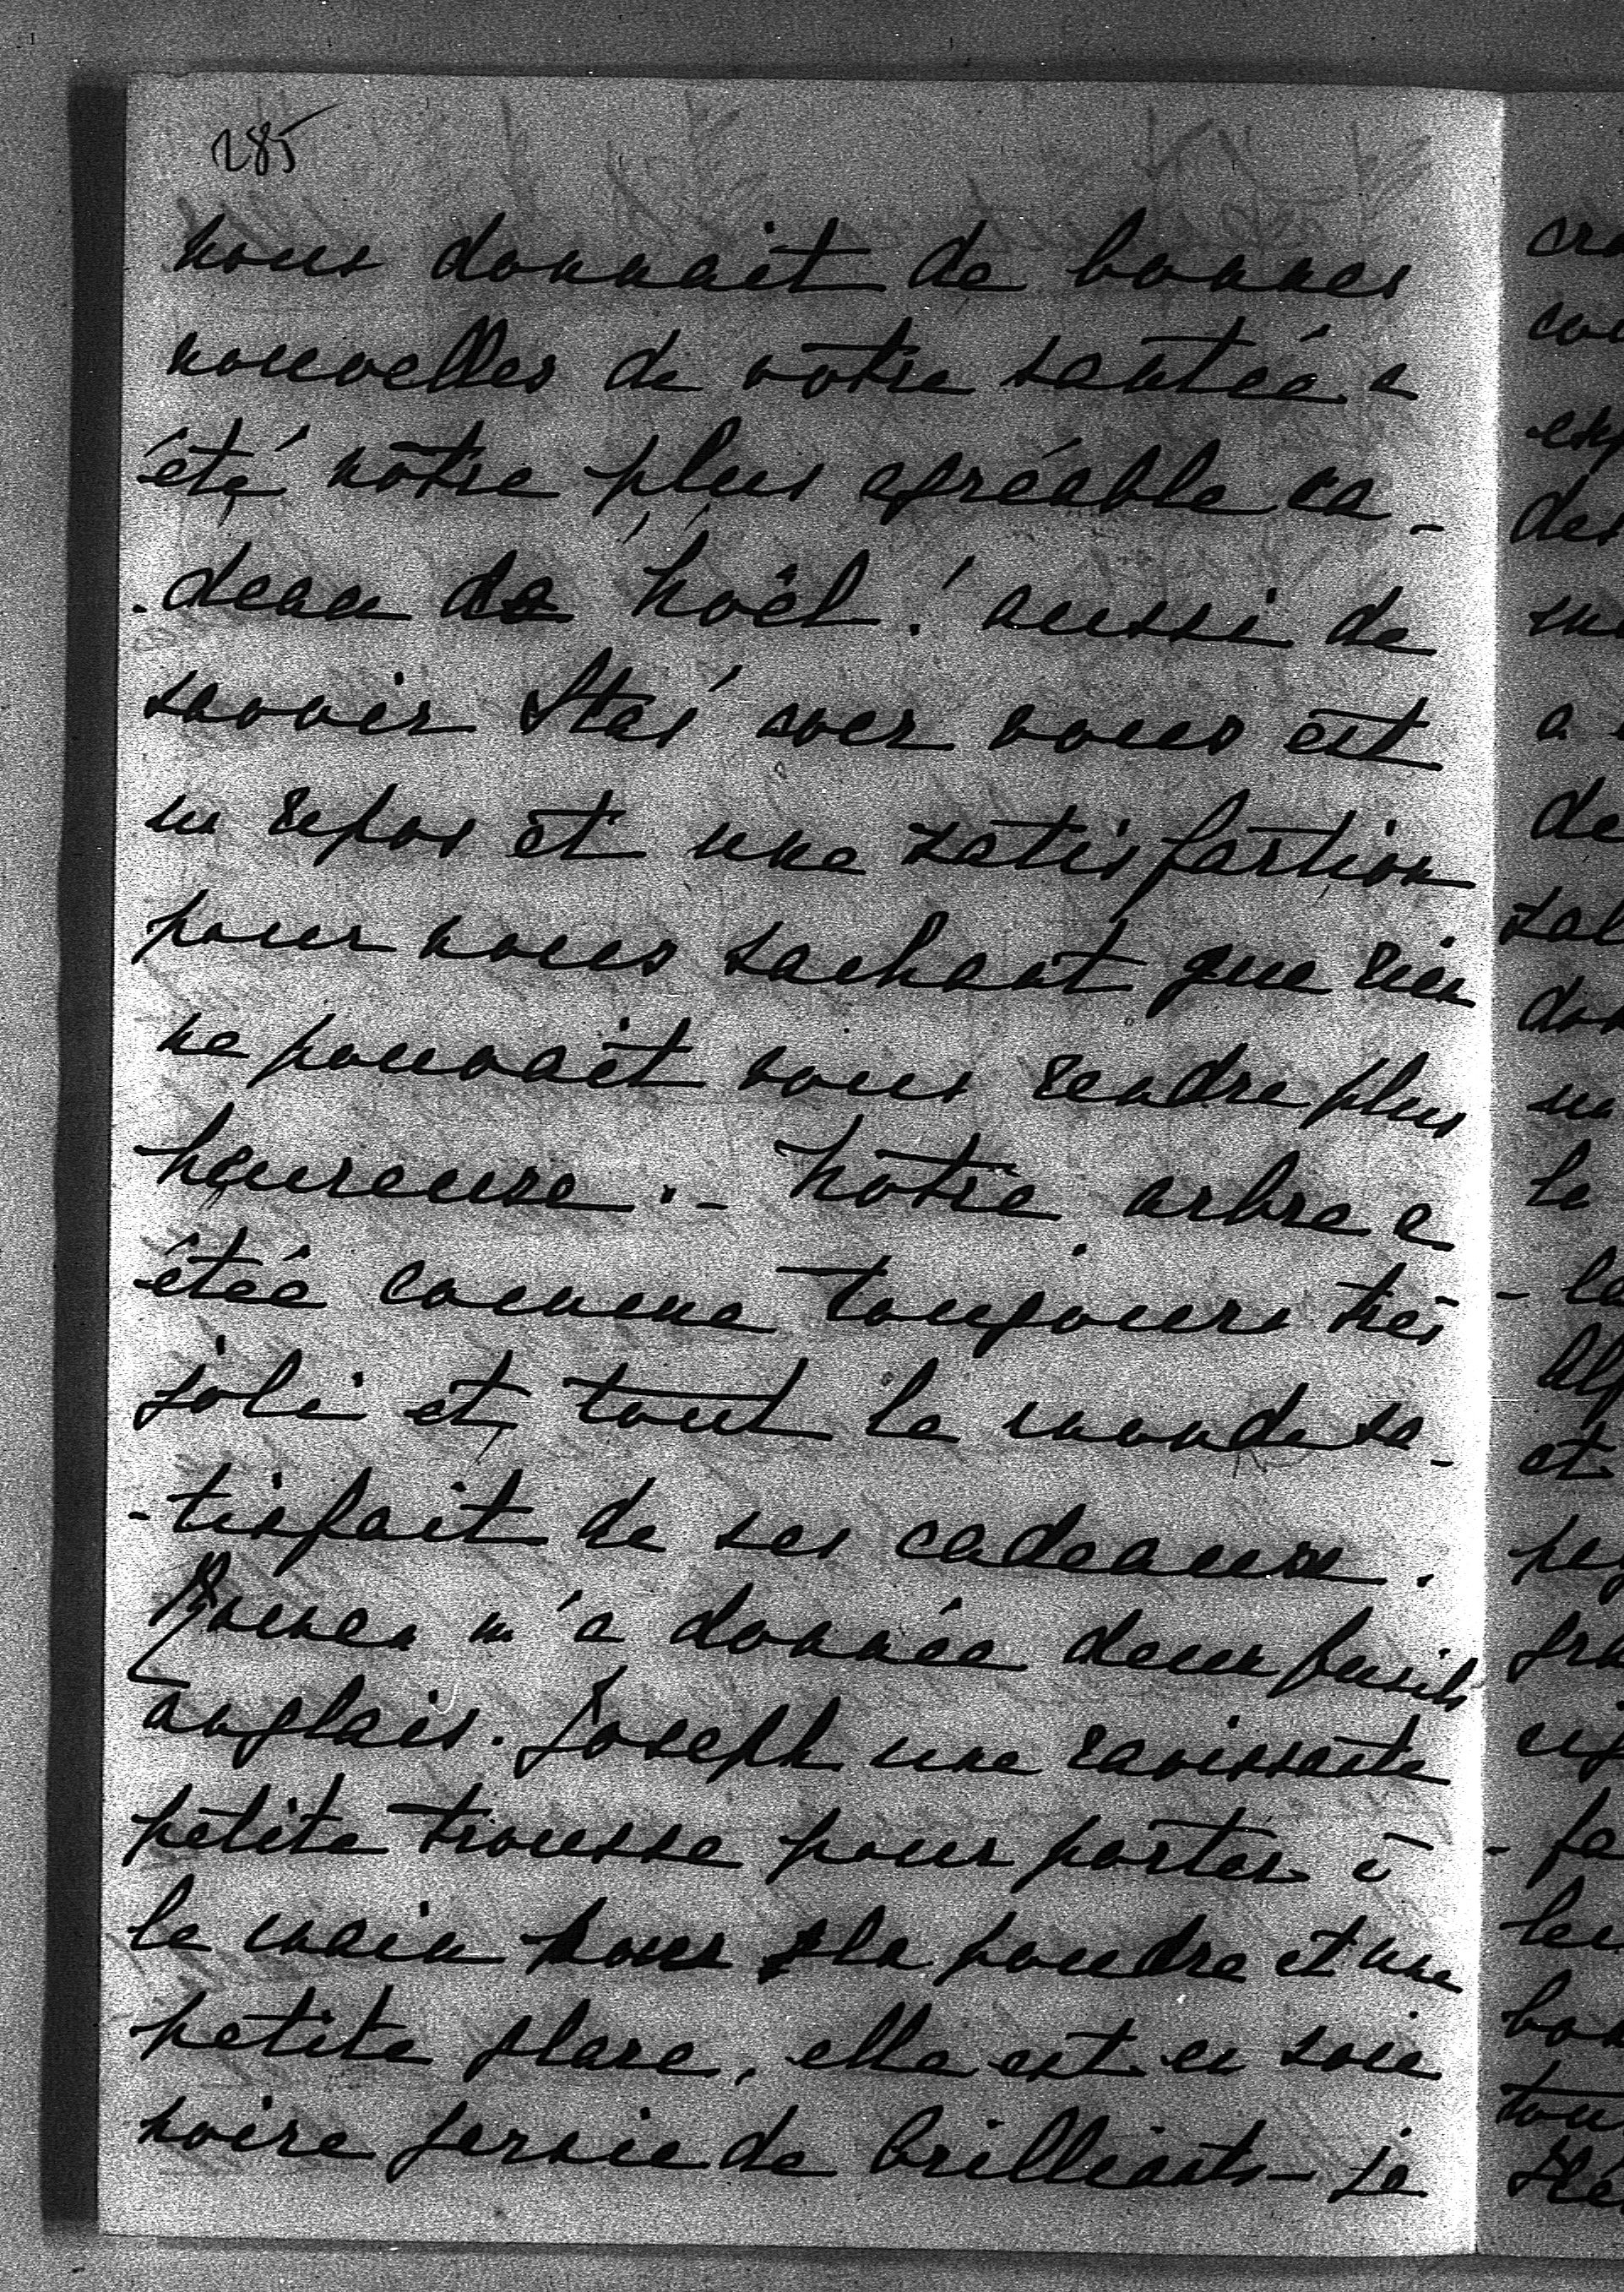 285
nous donnait de bonnes
nouvelles de votre santée a
été notre plus agréable ca-
-deau de Noël! aussi de
savoir Stas' avec vous est
un repos et une satisfaction
pour nous sachant que rien
ne pouvait vous rendre plus
heureuse.- Notre arbre a
étée comme toujours très
joli et tout le monde sa-
-tisfait de ses cadeaux.
m'a donnée deux fusils
anglais. Joseph une ravissante
petite trousse pour porter à
la main pour la poudre et une
petite glace, elle est en soie
noire garnie de brilliants - je